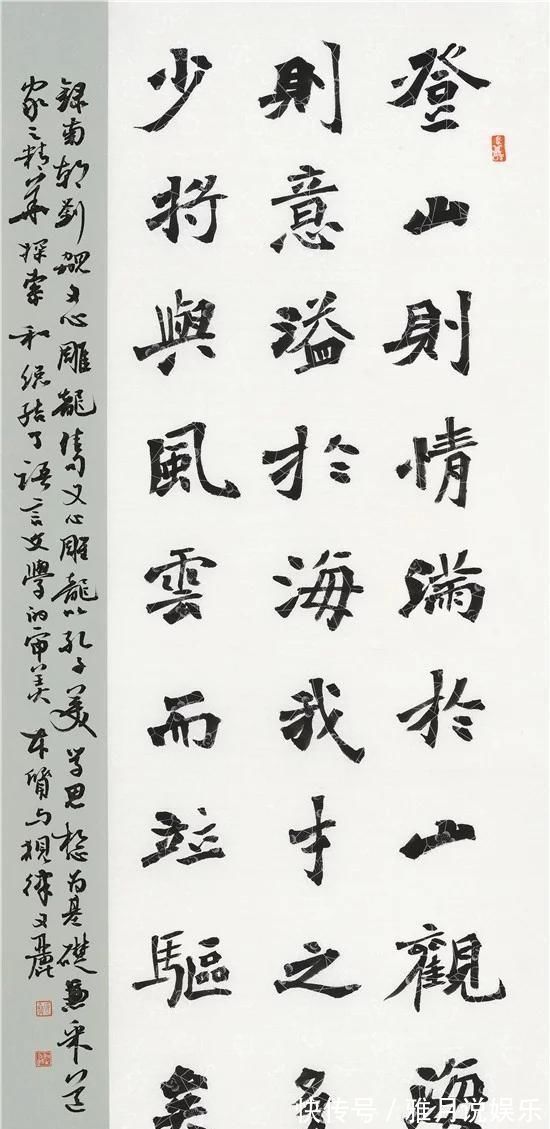 登山則情滿於山觀海
則意溢於海我才之多
少將與風雲而竝驅矣
録南朝劉勰文心雕龍 文心雕龍以孔子美學思想為基礎兼采道
家之精華探索和總結了語言文學的审美本質与規律文麗
快传号 / 雅月说娱乐